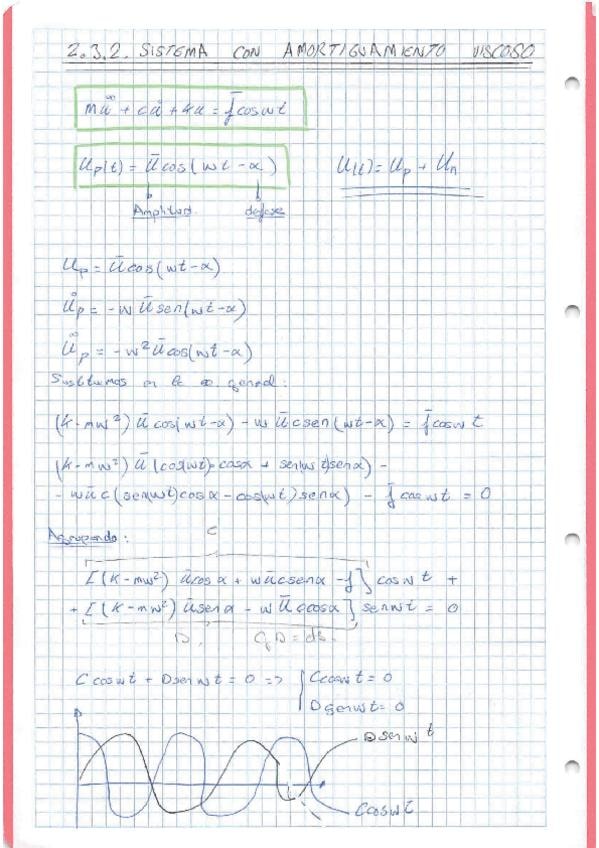 2.3.2. SISTEMA CON AMORTIGUAMIENTO VISCOSO
mü + cu̇ + ku = f̄ cos wt
Up(t) = ū cos (wt - α)
U(t) = Up + Un
Amplitud. defase
Up = ū cos (wt - α)
u̇p = -w ū sen (wt - α)
üp = -w² ū cos (wt - α)
Sustituimos en la ec. general:
(k - mw²) ū cos (wt - α) - w ū c sen (wt - α) = f̄ cos wt
(k - mw²) ū (cos(wt) · cos α + sen(wt) sen α) -
- w ū c (sen(wt) cos α - cos(wt) sen α) - f̄ cos wt = 0
Agrupando:
C
[(K - mw²) ū cos α + w ū c sen α - f] cos wt +
+ [(K - mw²) ū sen α - w ū c cos α] sen wt = 0
D.
C cos wt + D sen wt = 0 => { C cos wt = 0
D sen wt = 0
D sen wt
C cos wt